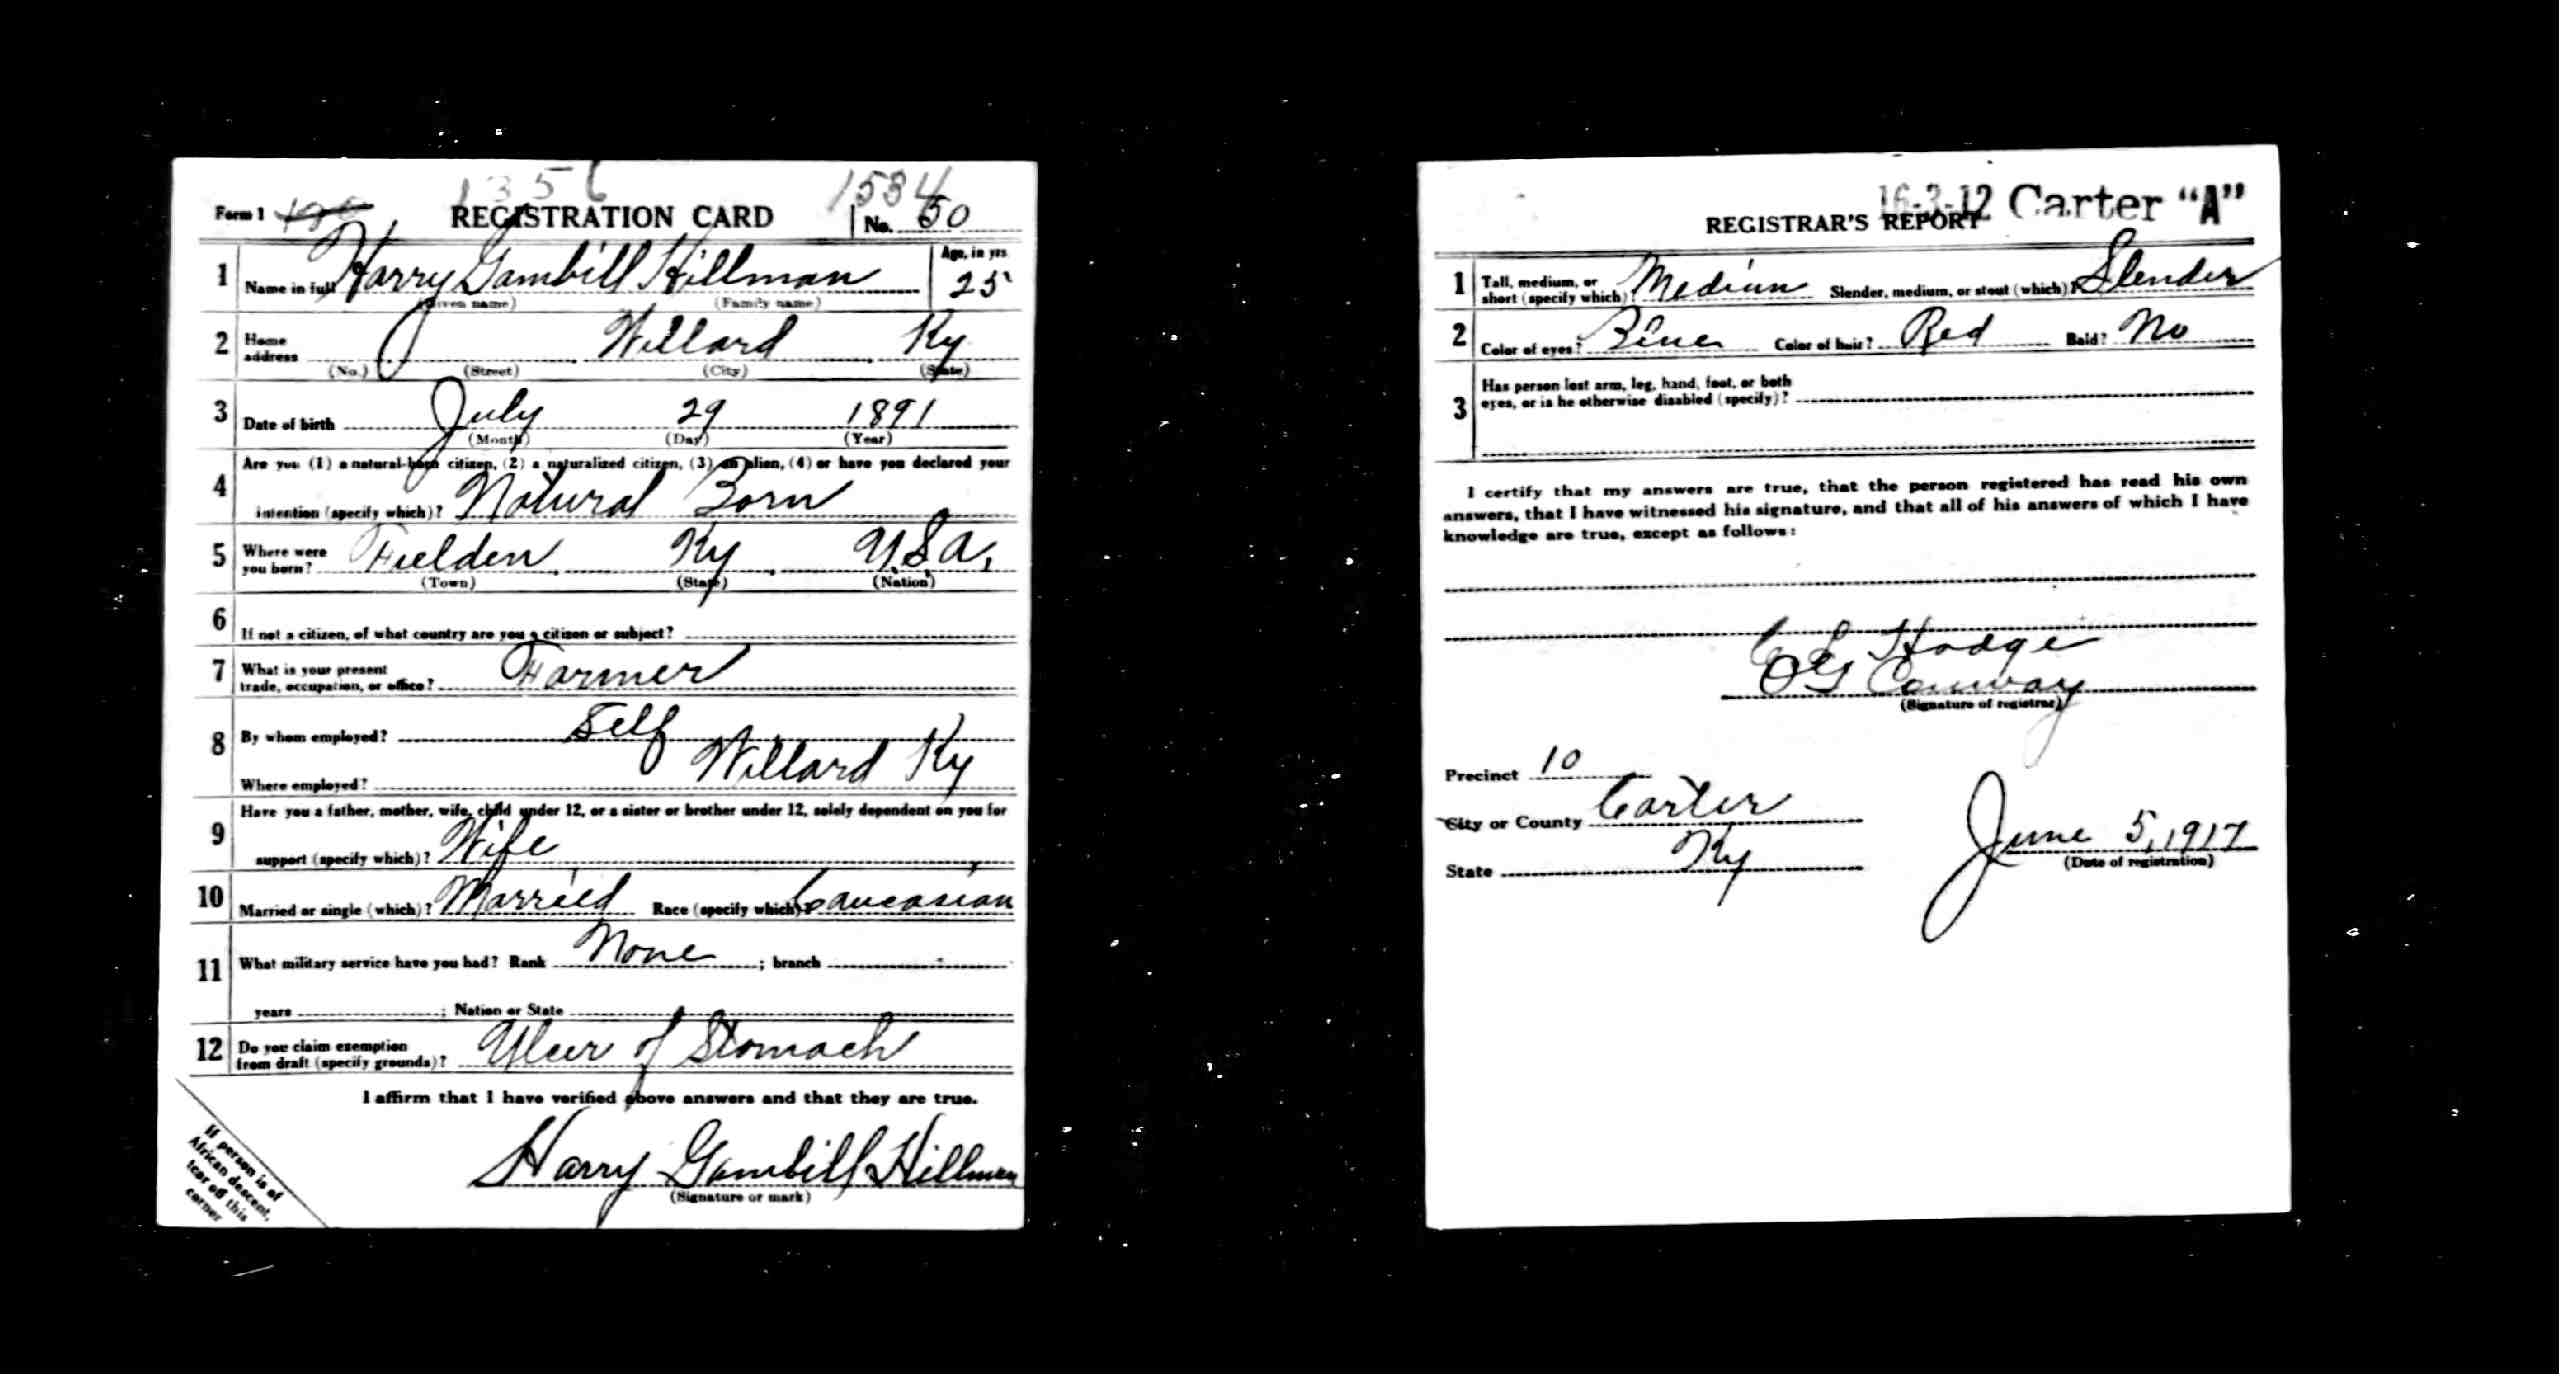 1356
1534
Form 1 REGISTRATION CARD No. 50
1 Name in full Harry Gambill Hillman Age, in yrs. 25
(Given name) (Family name)
2 Home address Willard Ky
(No.) (Street) (City) (State)
3 Date of birth July 29 1891
(Month) (Day) (Year)
4 Are you (1) a natural-born citizen, (2) a naturalized citizen, (3) an alien, (4) or have you declared your
intention (specify which)? Natural Born
5 Where were you born? Fielden Ky U.S.A.
(Town) (State) (Nation)
6 If not a citizen, of what country are you a citizen or subject?
7 What is your present trade, occupation, or office? Farmer
8 By whom employed? Self
Where employed? Willard Ky
9 Have you a father, mother, wife, child under 12, or a sister or brother under 12, solely dependent on you for
support (specify which)? Wife
10 Married or single (which)? Married Race (specify which)? Caucasian
11 What military service have you had? Rank None ; branch
years ; Nation or State
12 Do you claim exemption from draft (specify grounds)? Ulcer of Stomach
I affirm that I have verified above answers and that they are true.
Harry Gambill Hillman
(Signature or mark)
If person is of
African descent,
tear off this
corner
16-3-12 Carter "A"
REGISTRAR'S REPORT
1 Tall, medium, or short (specify which)? Medium Slender, medium, or stout (which)? Slender
2 Color of eyes? Blue Color of hair? Red Bald? No
3 Has person lost arm, leg, hand, foot, or both
eyes, or is he otherwise disabled (specify)?
I certify that my answers are true, that the person registered has read his own
answers, that I have witnessed his signature, and that all of his answers of which I have
knowledge are true, except as follows:
Hodge
OG Conway
(Signature of registrar)
Precinct 10
City or County Carter
State Ky
June 5, 1917
(Date of registration)